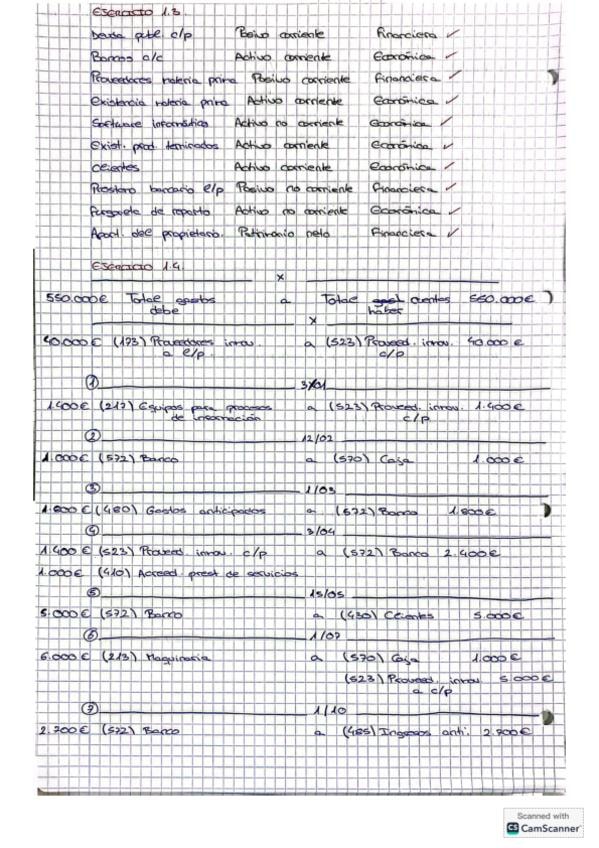 EJERCICIO 1.3.
Deuda pte c/p Pasivo corriente Financiera ✓
Bancos c/c Activo corriente Económica ✓
Proveedores materia prima Pasivo corriente Financiera ✓
Existencia materia prima Activo corriente Económica ✓
Software informático Activo no corriente Económica ✓
Exist. prod. terminados Activo corriente Económica ✓
Clientes Activo corriente Económica ✓
Préstamo bancario l/p Pasivo no corriente Financiera ✓
Furgoneta de reparto Activo no corriente Económica ✓
Aport. del propietario. Patrimonio neto Financiera ✓
EJERCICIO 1.4.
x
550.000€ Total debe a Total cuentas haber 550.000€
x
40.000€ (173) Proveedores inmov. a l/p. a (523) Proveed. inmov. c/p 40.000€
① 3/01
1.400€ (217) Equipos para procesos de información a (523) Proveed. inmov. c/p 1.400€
② 12/02
1.000€ (572) Banco a (570) Caja 1.000€
③ 1/03
1.800€ (480) Gastos anticipados a (572) Banco 1.800€
④ 3/04
1.400€ (523) Proveed. inmov. c/p a (572) Banco 2.400€
1.000€ (410) Acreed. prest de servicios
⑤ 15/05
5.000€ (572) Banco a (430) Clientes 5.000€
⑥ 1/07
6.000€ (213) Maquinaria a (570) Caja 1.000€
(523) Proveed. inmov. a c/p 5.000€
⑦ 1/10
2.700€ (572) Banco a (485) Ingresos anti. 2.700€
Scanned with
CS CamScanner